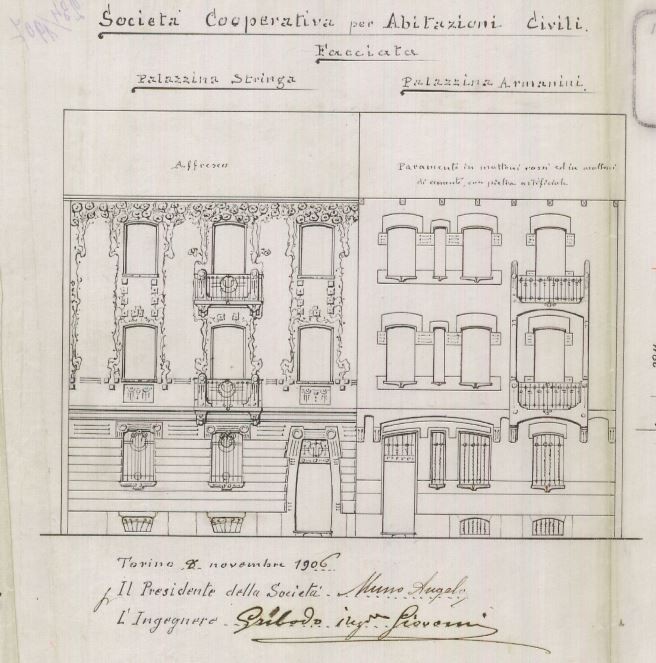 Società Cooperativa per Abitazioni Civili.
Facciata
Palazzina Stringa
Palazzina Armanini.
Affresco
Paramento in mattoni rossi ed in mattoni
di cemento, con pietra artificiale
Torino 8. novembre 1906.
Il Presidente della Società - Angelo
L'Ingegnere - Gribodo ingre Giovanni